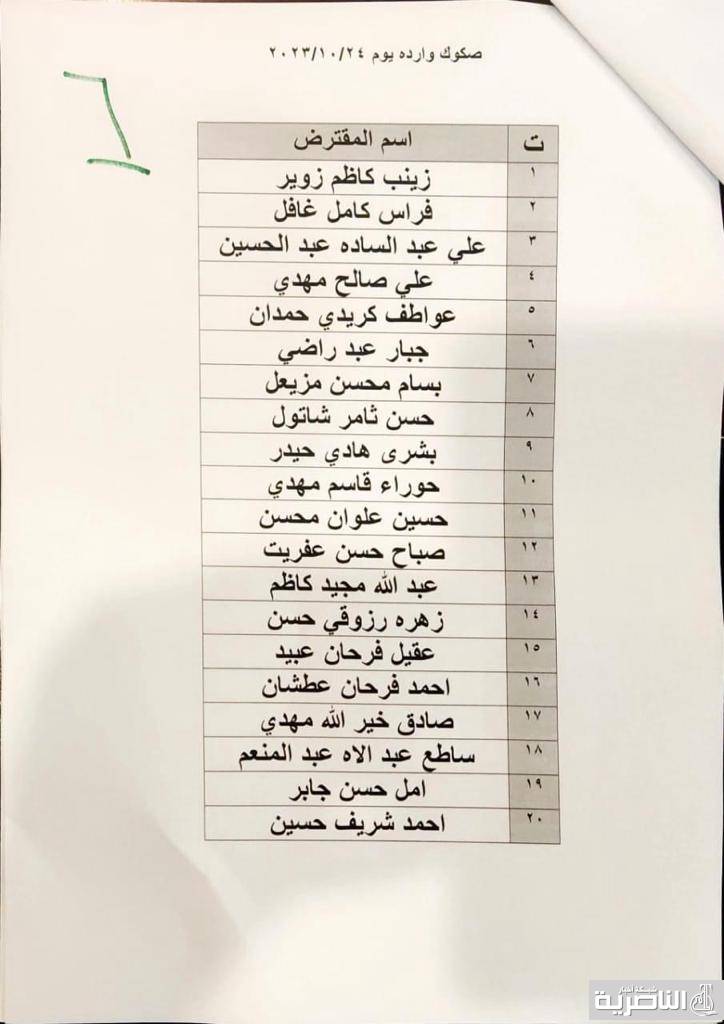 صكوك وارده يوم ٢٠٢٣/١٠/٢٤
٦
ت اسم المقترض
١ زينب كاظم زوير
٢ فراس كامل غافل
٣ علي عبد الساده عبد الحسين
٤ علي صالح مهدي
٥ عواطف كريدي حمدان
٦ جبار عبد راضي
٧ بسام محسن مزيعل
٨ حسن ثامر شاتول
٩ بشرى هادي حيدر
١٠ حوراء قاسم مهدي
١١ حسين علوان محسن
١٢ صباح حسن عفريت
١٣ عبد الله مجيد كاظم
١٤ زهره رزوقي حسن
١٥ عقيل فرحان عبيد
١٦ احمد فرحان عطشان
١٧ صادق خير الله مهدي
١٨ ساطع عبد الاه عبد المنعم
١٩ امل حسن جابر
٢٠ احمد شريف حسين
شبكة اخبار
الناصرية